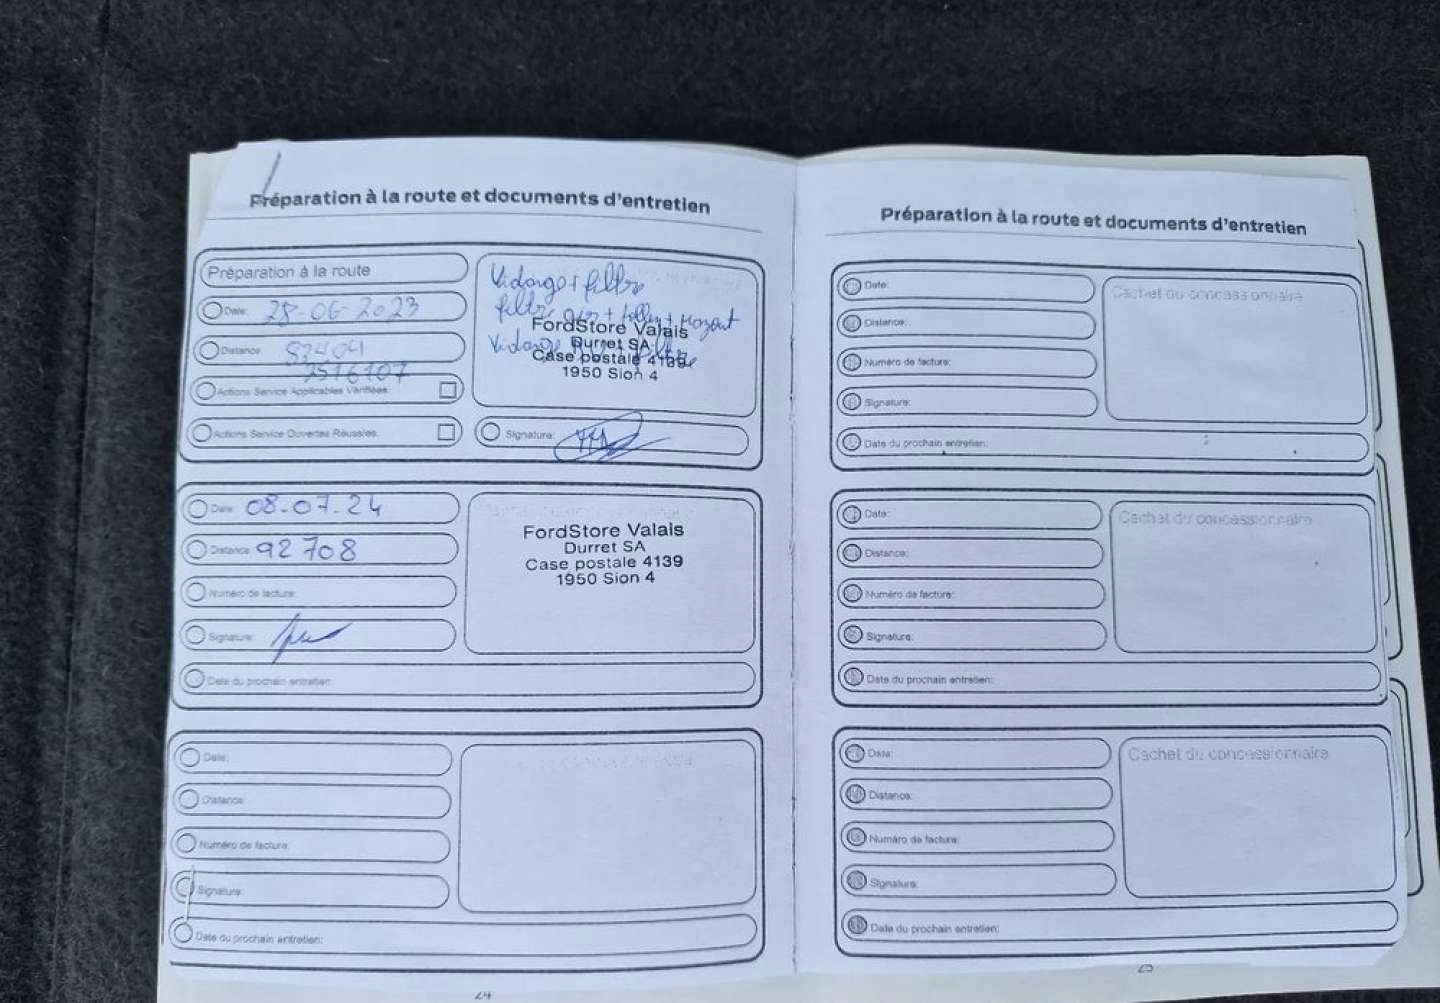 Préparation à la route et documents d'entretien
Préparation à la route
Date: 28-06-2023
Distance:
2516107
Actions Service Applicables Vérifiées:
Actions Service Ouvertes Réussies:
Vidange + filtre
filtre + + Mazout
Vidange
FordStore Valais
Durret SA
Case postale 4139
1950 Sion 4
Signature:
Date: 08-07-24
Distance: 92708
Numéro de facture:
Signature:
Date du prochain entretien:
FordStore Valais
Durret SA
Case postale 4139
1950 Sion 4
Date:
Distance:
Numéro de facture:
Signature:
Date du prochain entretien:
24
Préparation à la route et documents d'entretien
Date:
Distance:
Numéro de facture:
Signature:
Date du prochain entretien:
Cachet du concessionnaire
Date:
Distance:
Numéro de facture:
Signature:
Date du prochain entretien:
Cachet du concessionnaire
Date:
Distance:
Numéro de facture:
Signature:
Date du prochain entretien:
Cachet du concessionnaire
25